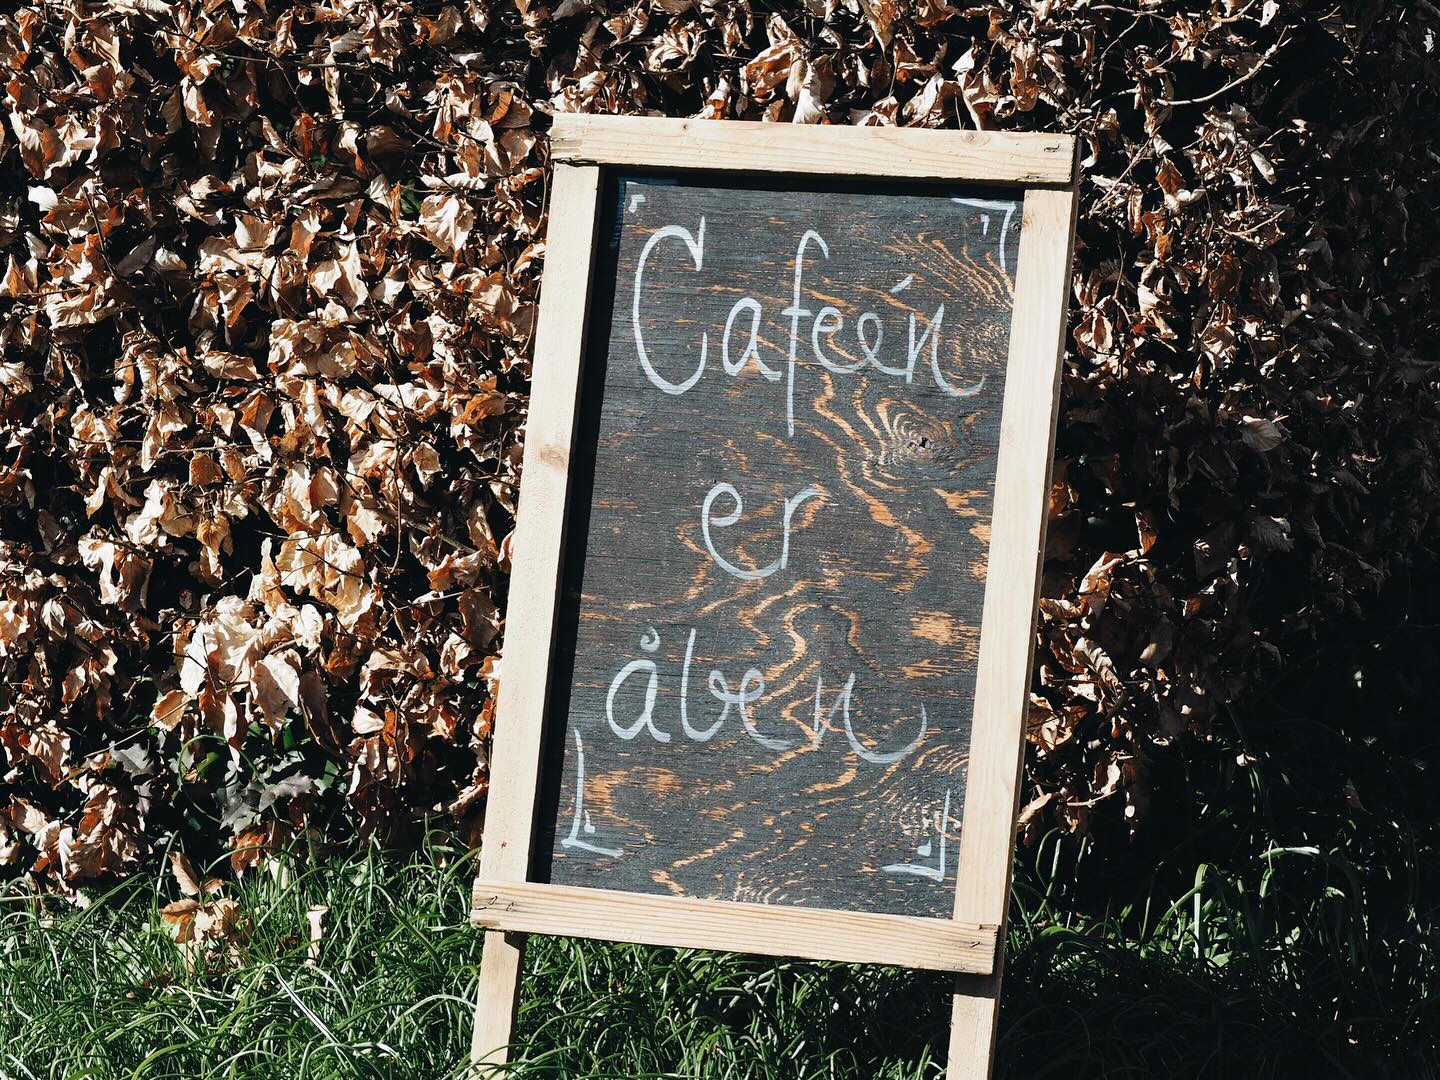 Cafeén
er
åben